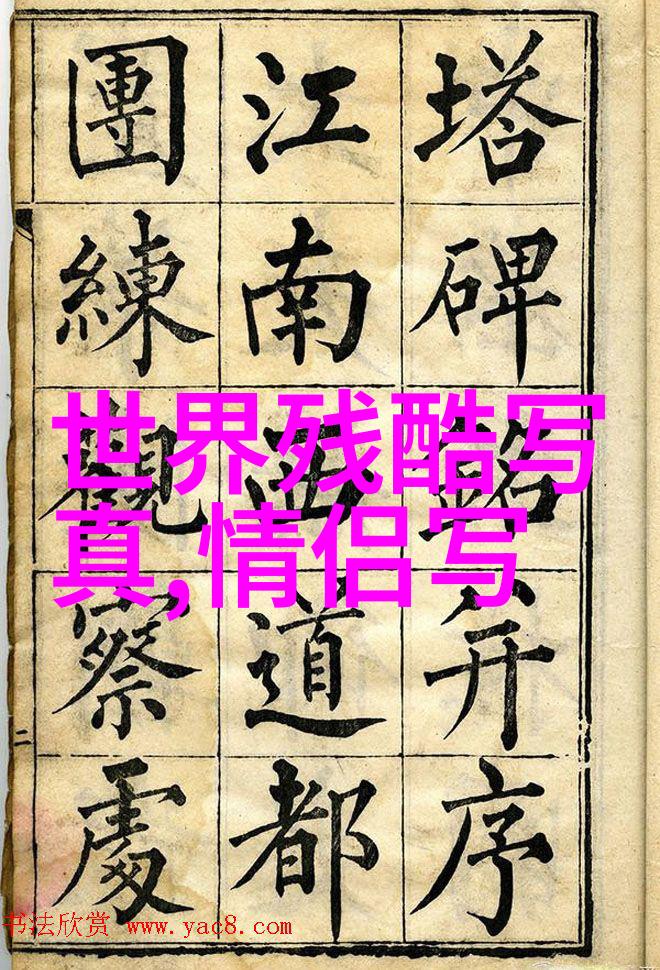 塔碑銘并序
江南西道都
團練觀察處
二
世界残酷写
真,情侣写
书法欣赏 www.yac8.com